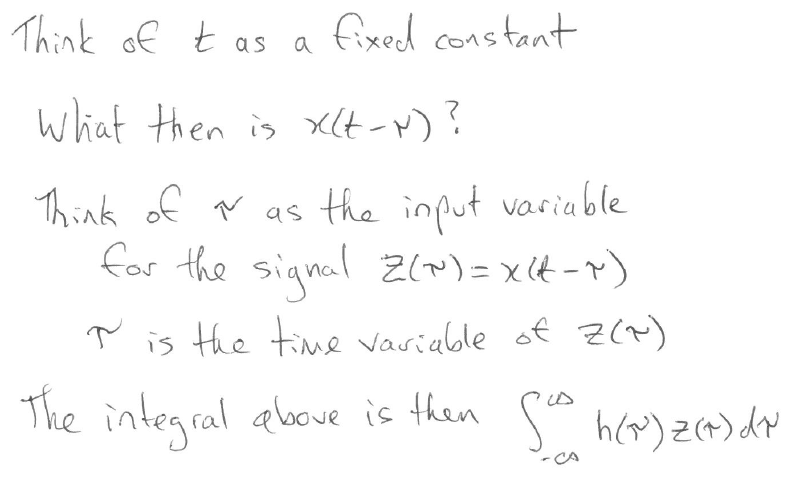 Think of t as a fixed constant
What then is x(t-τ)?
Think of τ as the input variable
for the signal z(τ)=x(t-τ)
τ is the time variable of z(τ)
The integral above is then ∫_{-∞}^{∞} h(τ)z(τ)dτ